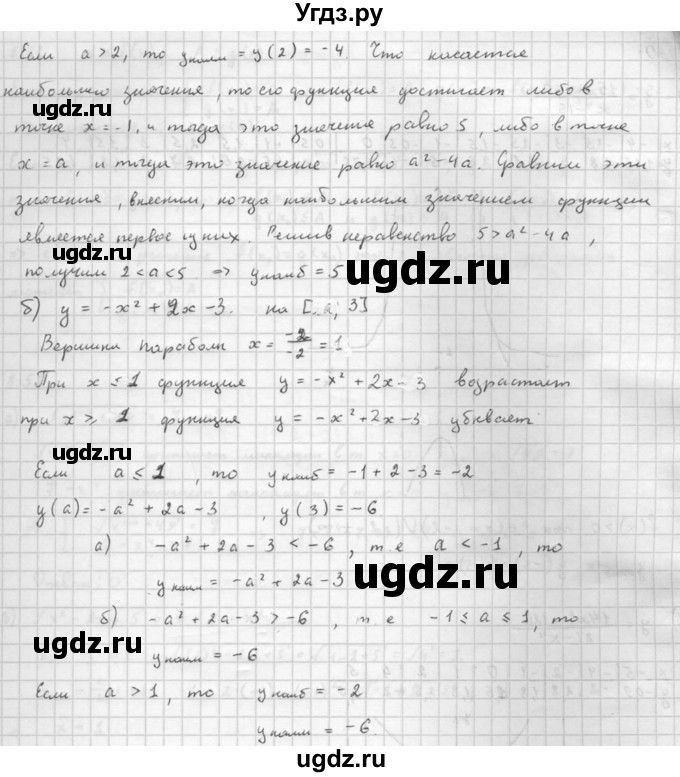 Угдз.ру
Если a > 2, то yнаим = y(2) = -4. Что касается
наибольшего значения, то его функция достигает либо в
точке x = -1, и тогда это значение равно 5, либо в точке
x = a, и тогда это значение равно a² - 4a. Сравним эти
значения, выясним, когда наибольшим значением функции
является первое из них. Решив неравенство 5 > a² - 4a,
получим 2 < a < 5. ⇒ yнаиб = 5
б) y = -x² + 2x - 3. на [a; 3]
Вершина параболы x = -2/-2 = 1
При x ≤ 1 функция y = -x² + 2x - 3 возрастает
при x ≥ 1 функция y = -x² + 2x - 3 убывает
Если a ≤ 1, то yнаиб = -1 + 2 - 3 = -2
y(a) = -a² + 2a - 3, y(3) = -6
а) -a² + 2a - 3 < -6, т е a < -1, то
yнаим = -a² + 2a - 3
б) -a² + 2a - 3 > -6, т е -1 ≤ a ≤ 1, то
yнаим = -6
Если a > 1, то yнаиб = -2
yнаим = -6
ugdz.ru
ugdz.ru
ugdz.ru
ugdz.ru
ugdz.ru
ugdz.ru
ugdz.ru
ugdz.ru
ugdz.ru
ugdz.ru